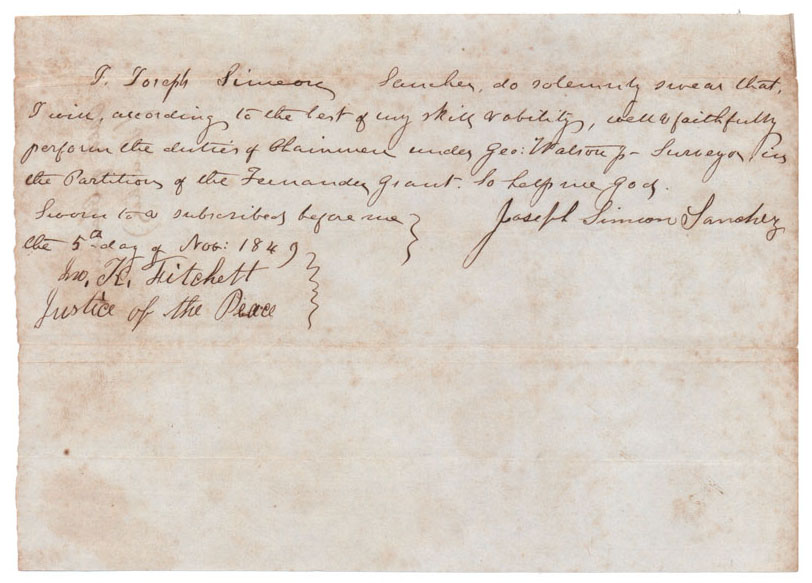 I, Joseph Simeon Sanchez, do solemnly swear that,
I will, according to the best of my skill & ability, well & faithfully
perform the duties of Chainmen under Geo: Watson Jr Surveyor in
the Partition of the Fernandez Grant. So help me God.
Sworn to & subscribed before me } Joseph Simeon Sanchez
the 5th day of Nov: 1849
Jno. K. Fitchett
Justice of the Peace